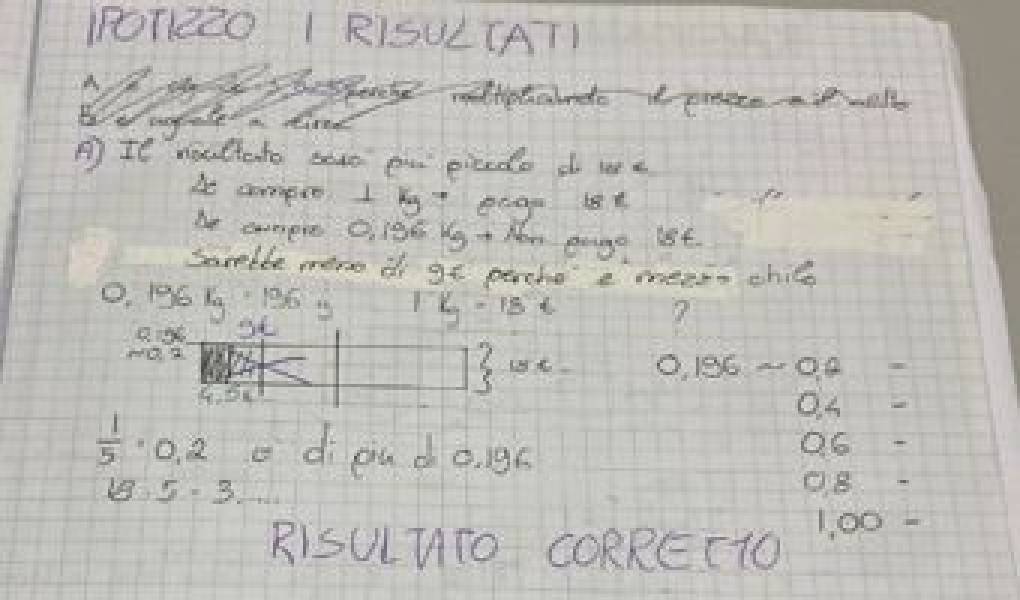 IPOTIZZO I RISULTATI
A perché moltiplicando il prezzo e il
B è uguale a
A) Il risultato sarà più piccolo di 18 €
Se compro 1 Kg → pago 18 €
Se compro 0,196 Kg → Non pago 18 €
Sarebbe meno di 9€ perché è mezzo chilo
0,196 Kg = 196 g 1 Kg = 18 € ?
0,196 9€
~0,2 18 € 0,196 ~ 0,2 -
4,5€ 0,4 -
1/5 = 0,2 è di più di 0,196 0,6 -
18 : 5 = 3..... 0,8 -
1,00 -
RISULTATO CORRETTO